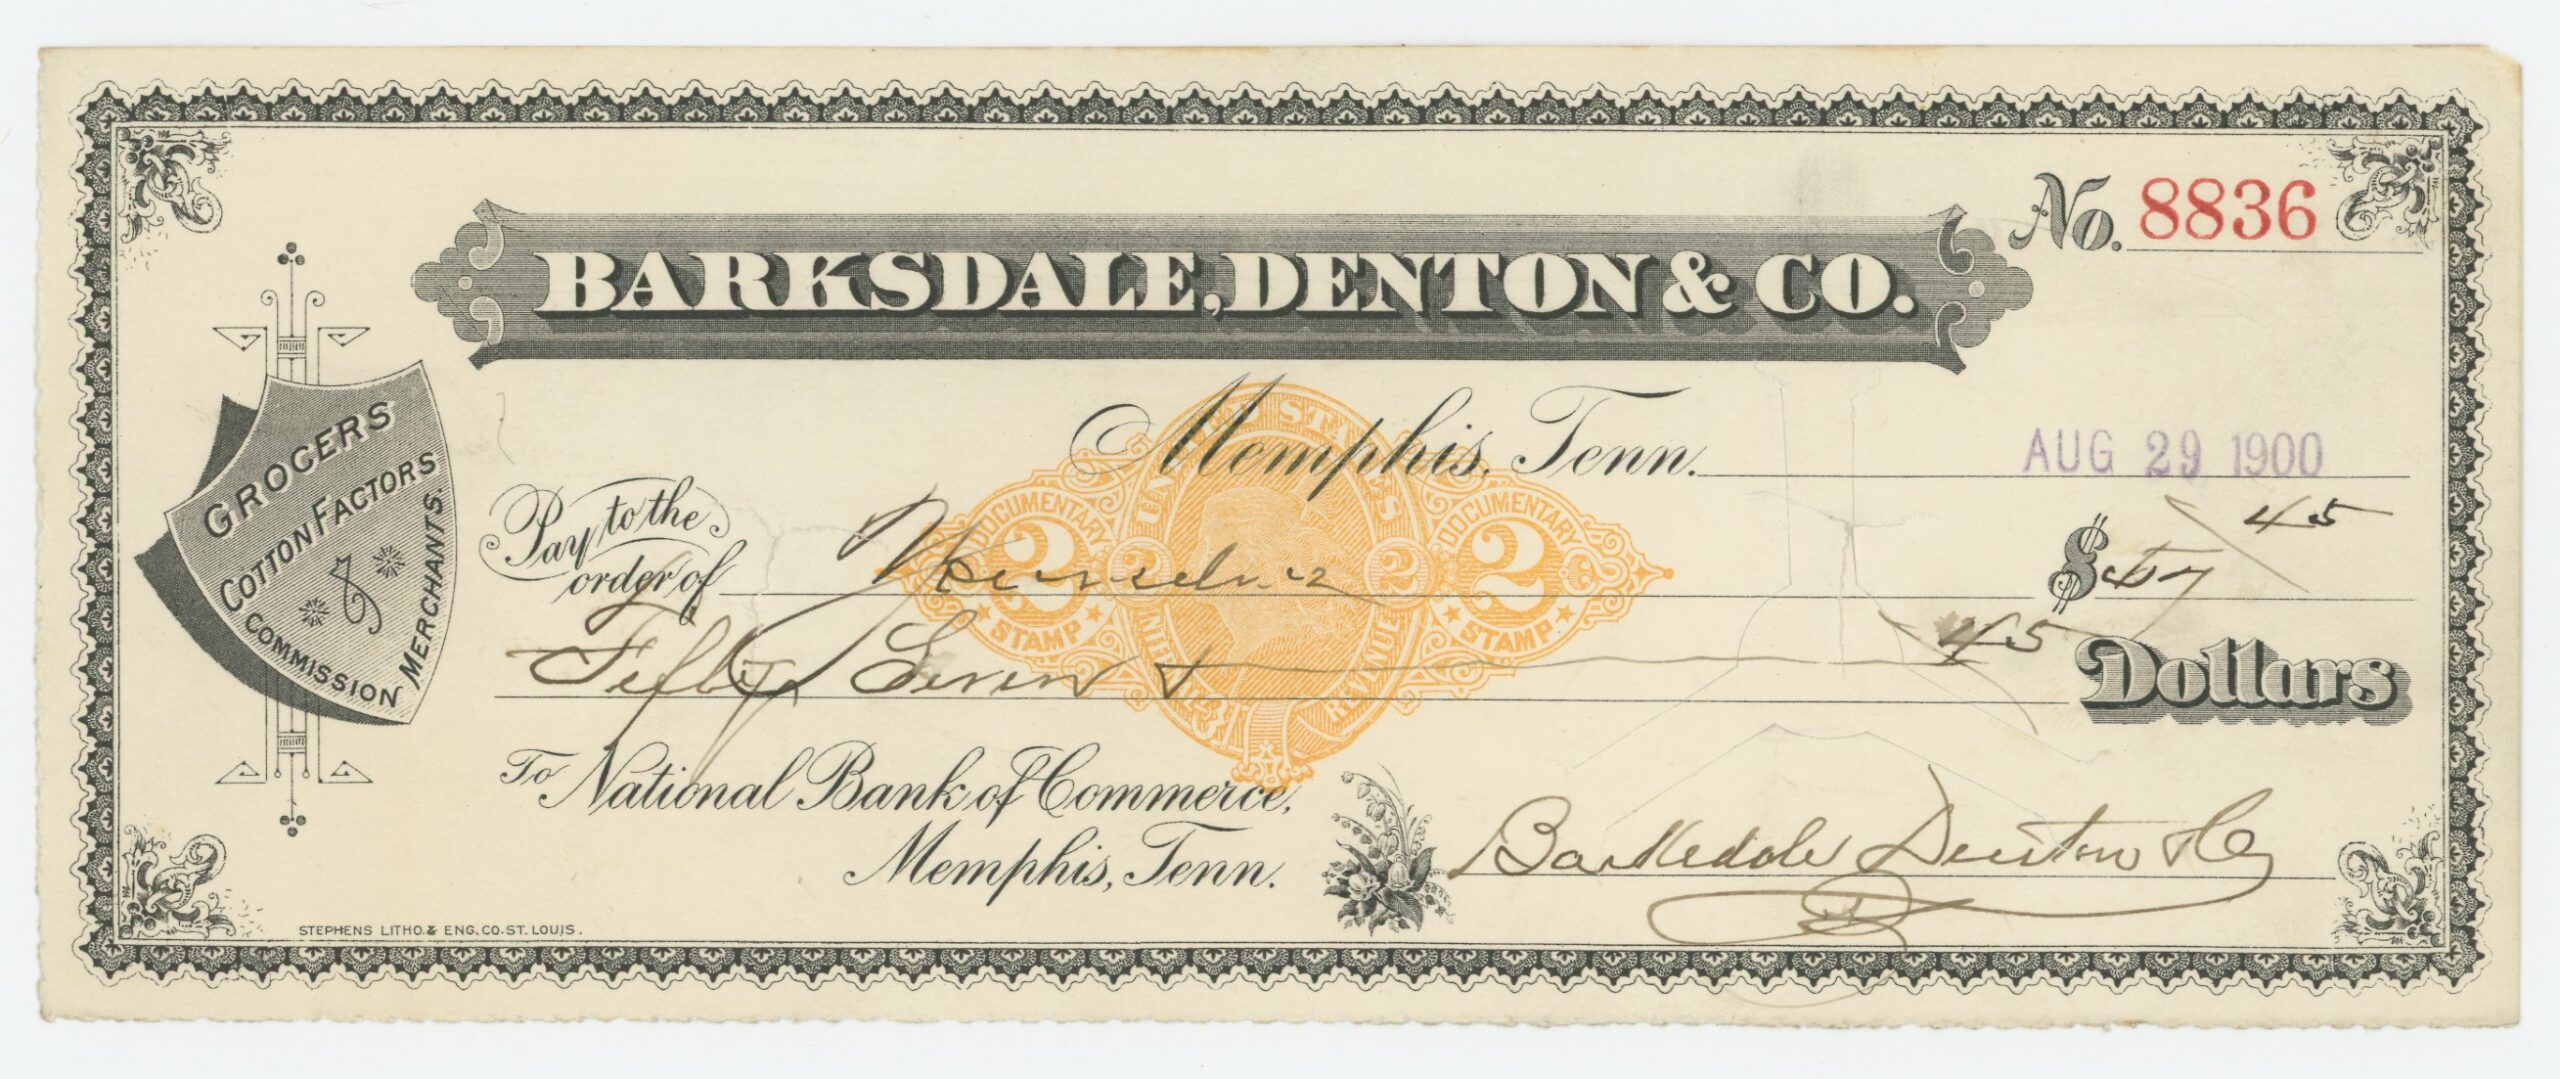 No. 8836
BARKSDALE, DENTON & CO.
GROCERS
COTTON FACTORS
COMMISSION MERCHANTS.
Memphis, Tenn. AUG 29 1900
Pay to the order of $57 45
Fifty Seven + 45 Dollars
UNITED STATES
DOCUMENTARY 2 STAMP 2
2 DOCUMENTARY 2 STAMP
INTERNAL REVENUE
To National Bank of Commerce,
Memphis, Tenn.
Barksdale Denton & Co
STEPHENS LITHO. & ENG. CO. ST. LOUIS.